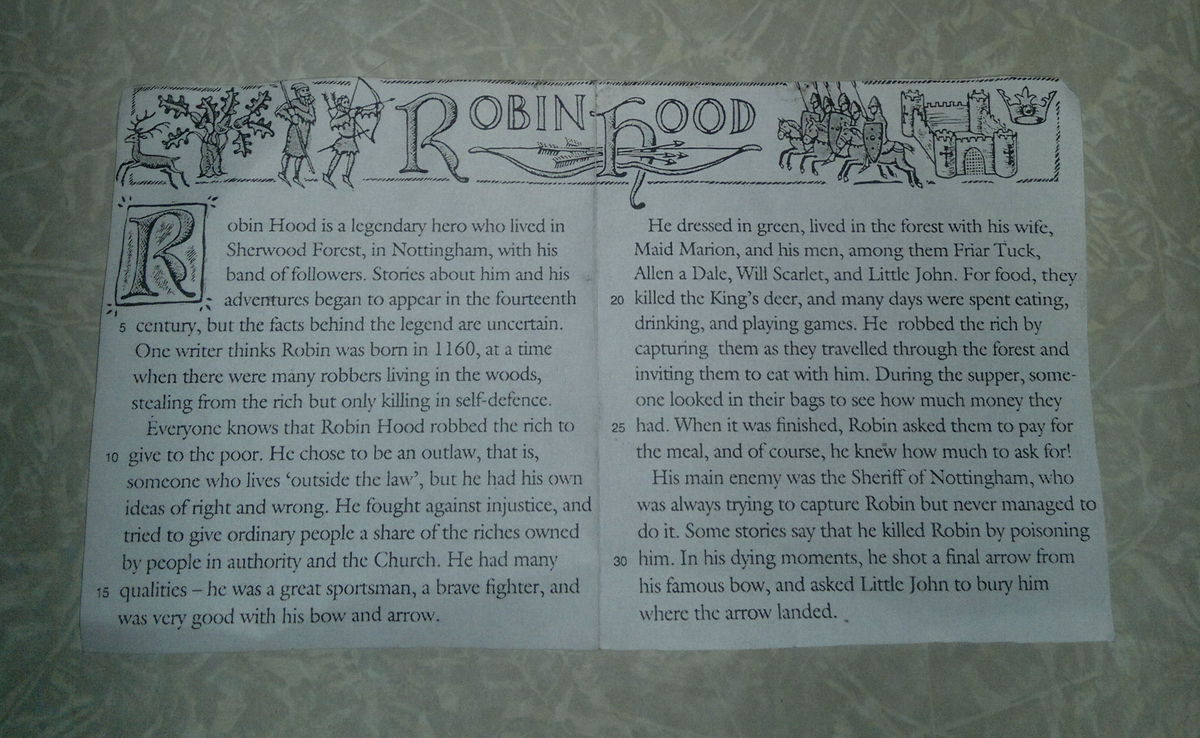 ROBIN HOOD
Robin Hood is a legendary hero who lived in
Sherwood Forest, in Nottingham, with his
band of followers. Stories about him and his
adventures began to appear in the fourteenth
5 century, but the facts behind the legend are uncertain.
One writer thinks Robin was born in 1160, at a time
when there were many robbers living in the woods,
stealing from the rich but only killing in self-defence.
Everyone knows that Robin Hood robbed the rich to
10 give to the poor. He chose to be an outlaw, that is,
someone who lives ‘outside the law’, but he had his own
ideas of right and wrong. He fought against injustice, and
tried to give ordinary people a share of the riches owned
by people in authority and the Church. He had many
15 qualities – he was a great sportsman, a brave fighter, and
was very good with his bow and arrow.
He dressed in green, lived in the forest with his wife,
Maid Marion, and his men, among them Friar Tuck,
Allen a Dale, Will Scarlet, and Little John. For food, they
20 killed the King’s deer, and many days were spent eating,
drinking, and playing games. He robbed the rich by
capturing them as they travelled through the forest and
inviting them to eat with him. During the supper, some-
one looked in their bags to see how much money they
25 had. When it was finished, Robin asked them to pay for
the meal, and of course, he knew how much to ask for!
His main enemy was the Sheriff of Nottingham, who
was always trying to capture Robin but never managed to
do it. Some stories say that he killed Robin by poisoning
30 him. In his dying moments, he shot a final arrow from
his famous bow, and asked Little John to bury him
where the arrow landed.